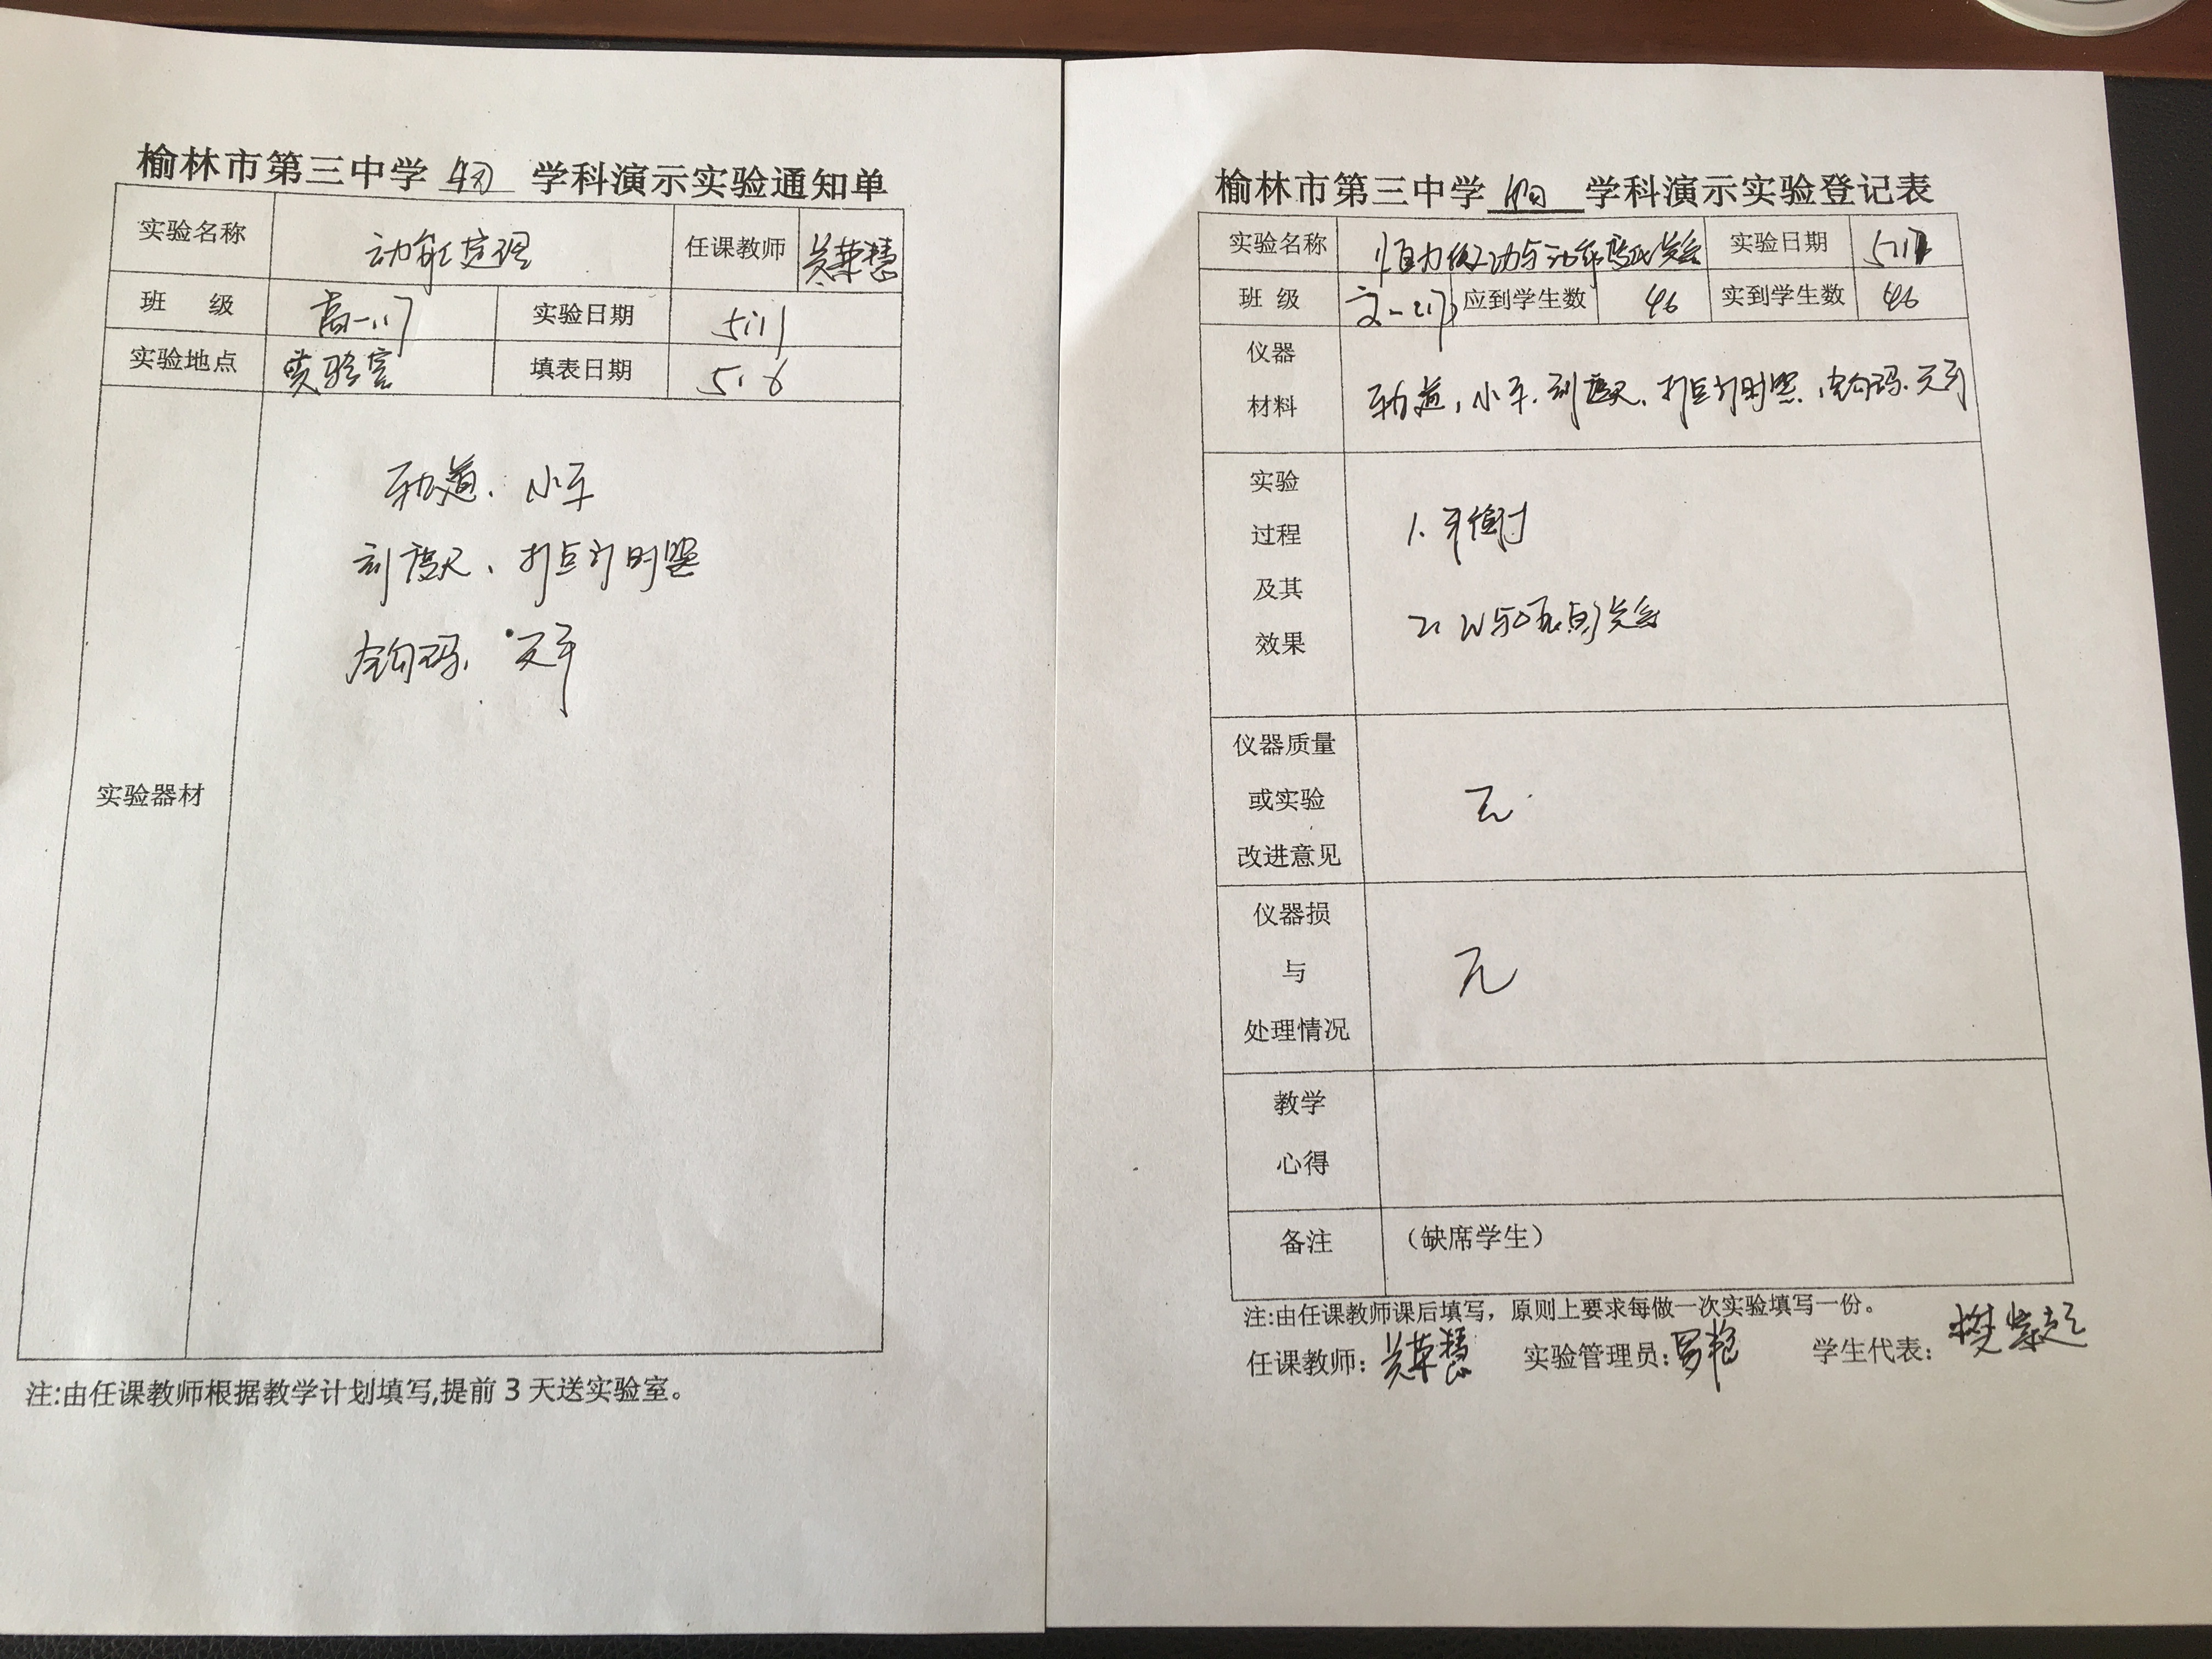 榆林市第三中学 物 学科演示实验通知单
实验名称 动能定理 任课教师
班 级 高一.17 实验日期 5.11
实验地点 实验室 填表日期 5.6
实验器材
轨道、小车
刻度尺、打点计时器
钩码、天平
注:由任课教师根据教学计划填写,提前 3 天送实验室。
榆林市第三中学 物 学科演示实验登记表
实验名称 恒力做功与动能变化关系 实验日期
班 级 应到学生数 46 实到学生数 46
仪器
材料
轨道、小车、刻度尺、打点计时器、钩码、天平
实验
过程
及其
效果
1. 平衡
2. W与 的关系
仪器质量
或实验
改进意见
无
仪器损
与
处理情况
无
教学
心得
备注 （缺席学生）
注:由任课教师课后填写，原则上要求每做一次实验填写一份。
任课教师： 实验管理员： 学生代表：